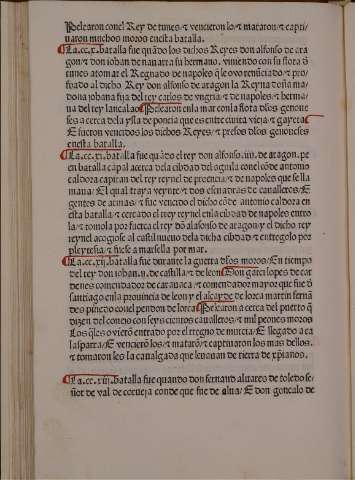 Pelearon conel Rey de tunes/⁊ vencieron lo/⁊ mataron/⁊ capti/
uaron muchos moros enesta batalla.
La.cc.x.batalla fue quãdo los dichos Reyes don alfonso de ara
gon/⁊ don iohan de nauarra su hermano. viniendo con su flota d̃
tunes a tomar el Regnado de napoles q̃ le ovo renũciado/⁊ pro/
fijado al dicho Rey don alfonso de aragon la Reyna doña ma/
dona johana fija del rey carlos de vngria/⁊ de napoles/⁊ herma/
na del rey lançalao Pelearon enla mar conla flota d̃los genoue
ses a cerca dela ysla de poncia que es entre ciuita vieja/⁊ gayeta
E fueron vencidos los dichos Reyes/⁊ presos d̃los genoueses
enesta batalla.
La.cc.xi.batalla fue quãdo el rey don alfonso.iiii.de aragon.pe
en batalla cãpal acerca dela cibdad del aguila conel cõde antonio
caldora capitan del rey reynel de proencia/⁊ de napoles que se lla
maua/E el qual traya veynte/⁊ dos escuadras de caualleros/E
gentes de armas/⁊ fue vencido el dicho cõde antonio caldora en
esta batalla/⁊ cercado el rey reynel enla cibdad de napoles entro
la/⁊ tomola por fuerça el rey dõ alfonso de aragon/⁊ el dicho rey
reynel acogiose al castil nueuo dela dicha cibdad/⁊ entregolo por
pleytesia/⁊ fuese a marsella por mar.
La.cc.xii.batalla fue durante la guerra d̃los moros/En tiempo
del rey don iohan.ii.de castilla/⁊ de leon Don garci lopes de car
denes comendador de carauaca/⁊ comendador mayor que fue d̃
santiago enla prouincia de leon y el alcayde de lorca martin fernã
des piñero conel pendon de lorca Pelearon a cerca del puerto q̃
dizen del conejo con seys cientos caualleros/⁊ mil peones moros
Los q̃les ovierõ entrado por el regno de murcia/E llegado a ca
lasparra/E vencierõ los/⁊ matarõ/⁊ captiuaron los mas dellos.
⁊ tomaron les la caualgada que leuauan de tierra de xp̃ianos.
La.cc.xiii.batalla fue quando don fernand aluares de toledo se/
ñor de val de corneja conde que fue de alua/E don gonçalo de